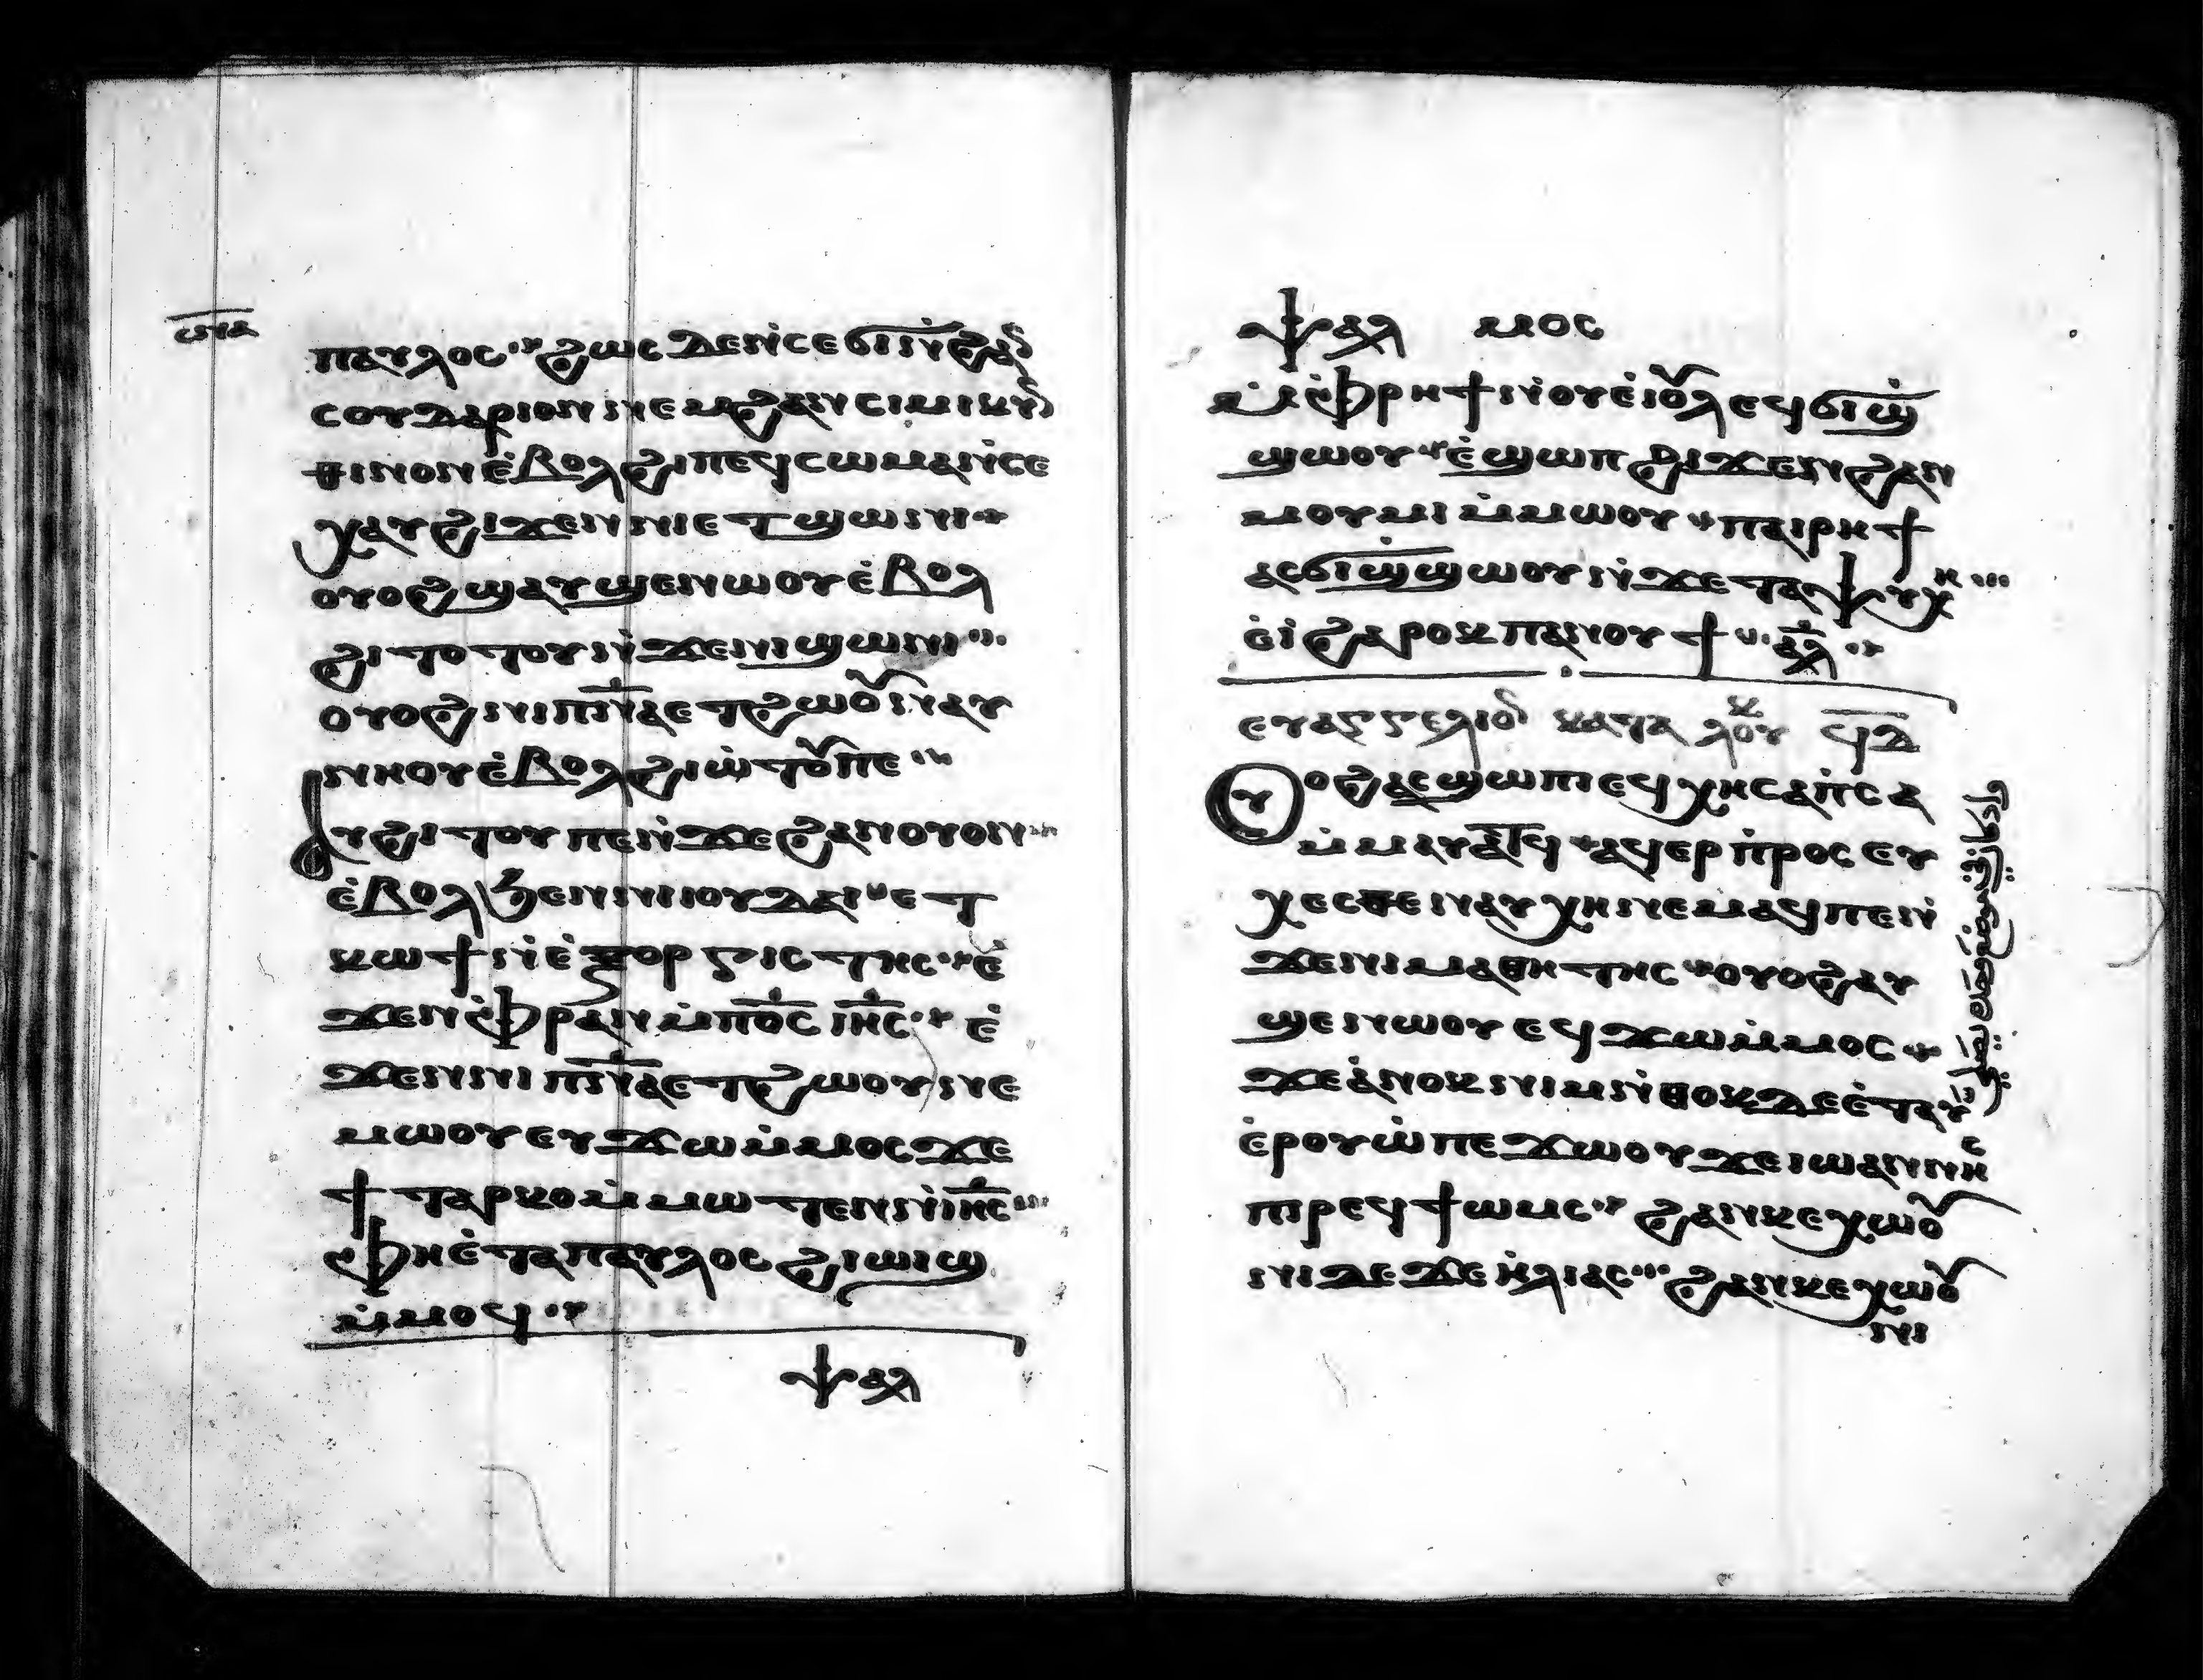 ⲥ̅ⲛ̅ⲁ̅
ⲡⲁⲩⲗⲟⲥ ϩⲱⲥ ⲇⲉ ⲛ̇ⲥⲉϭⲓ ⲛ̇ϩⲁⲛ
ⲥⲟⲩⲇⲁⲣⲓⲟⲛ ⲛⲉⲙ ϩⲁⲛⲥⲓⲙⲓⲕⲩⲛ
ⲑⲓⲛⲟⲛ ⲉ̇ⲃⲟⲗϩⲓ ⲡⲉϥⲥⲱⲙⲁ ⲛ̇ⲥⲉ
ⲭⲁⲩ ϩⲓϫⲉⲛ ⲛⲓⲉⲧϣⲱⲛⲓ
ⲟⲩⲟϩ ϣⲁⲩϣⲉⲛⲱⲟⲩ ⲉ̇ⲃⲟⲗ
ϩⲓⲧⲟⲧⲟⲩ ⲛ̇ϫⲉ ⲛⲓϣⲱⲛⲓ
ⲟⲩⲟϩ ⲛⲓⲡⲛ̅ⲁ̅ ⲉⲧϩⲱⲟⲩ ⲛⲁⲩ
ⲛⲏⲟⲩ ⲉ̇ⲃⲟⲗ ϩⲓⲱ̇ⲧⲟⲩ ⲡⲉ
ⲁⲩϩⲓⲧⲟⲩ ⲡⲉ ⲛ̇ϫⲉ ϩⲁⲛⲟⲩⲟⲛ
ⲉ̇ⲃⲟⲗϧⲉⲛ ⲛⲓⲓⲟⲩⲇⲁⲓ ⲉⲧ
ⲕⲱϯ ⲛ̇ⲉ̇ⲝⲟⲣⲅⲓⲥⲧⲏⲥ ⲉ̇
ϫⲉⲛ ⲫ̇ⲣⲁⲛ ⲙ̇ⲡⲟ̅ⲥ̅ ⲓⲏ̅ⲥ̅ ⲉ̇
ϫⲉⲛ ⲛⲓⲡⲛ̅ⲁ̅ ⲉⲧϩⲱⲟⲩ ⲛⲉ
ⲙⲱⲟⲩ ⲉⲩϫⲱ ⲙ̇ⲙⲟⲥ ϫⲉ
ϯⲧⲁⲣⲕⲟ ⲙ̇ⲙⲱⲧⲉⲛ ⲛ̇ⲓⲏ̅ⲥ̅
ⲫ̇ⲏⲉ̇ⲧⲁ ⲡⲁⲩⲗⲟⲥ ϩⲓⲱⲓϣ
ⲙ̇ⲙⲟϥ
ⲯⲁⲗ
ⲯⲁⲗ ⲙⲟⲥ
ⲙ̇ⲫ̇ⲣⲏϯ ⲛ̇ⲟⲩⲉ̇ⲓⲟⲩⲗ ⲉϥϭⲓϣ̇
ϣⲱⲟⲩ ⲉ̇ϣⲱⲡ ϩⲓϫⲉⲛ ϩⲁⲛ
ⲙⲟⲩⲙⲓ ⲙ̇ⲙⲱⲟⲩ ⲡⲁⲓⲣⲏϯ
ⲁⲥϭⲓϣ̇ϣϣⲱⲟⲩ ⲛ̇ϫⲉ ⲧⲁⲯⲩⲭⲏ
ⲉ̇ⲓ̇ ϩⲁⲣⲟⲕ ⲡⲁⲛⲟⲩϯ ⲁ̅ⲗ̅
ⲉⲩⲁⲅⲅⲉⲗⲓⲟⲛ ⲕⲁⲧⲁ ⲗⲟⲩⲕ ϥ̅ⲇ̅
Ⲟⲩⲟϩ ⲁⲥϣⲱⲡⲓ ⲉϥⲭⲏ ⲥⲁⲡ̇ⲥⲁ
ⲙ̇ⲙⲁⲩⲁⲧϥ ⲁϥⲉⲣⲡ̇ⲣⲟⲥⲉⲩ
ⲭⲉⲥⲑⲉ ⲛⲁⲩⲭⲏ ⲛⲉⲙⲁϥ ⲡⲉ ⲛ̇
ϫⲉ ⲛⲓⲙⲁⲑⲏⲧⲏⲥ ⲟⲩⲟϩ ⲁⲩ
ϣⲉⲛⲱⲟⲩ ⲉϥϫⲱ ⲙ̇ⲙⲟⲥ
ϫⲉ ⲁ̇ⲛⲟⲕ ⲛⲓⲙ ⲛ̇ⲑⲟⲕ ⲇⲉ ⲉ̇ⲧⲁⲩ
ⲉ̇ⲣⲟⲩⲱ̇ ⲡⲉϫⲱⲟⲩ ϫⲉ ⲓⲱⲁⲛⲛⲏⲥ
ⲡⲓⲣⲉϥϯⲱⲙⲥ ϩⲁⲛⲕⲉⲭⲱⲟⲩ
ⲛⲓ ⲇⲉ ϫⲉ ⲏ̇ⲗⲓⲁⲥ ϩⲁⲛⲕⲉⲭⲱⲟⲩ
ⲛⲓ